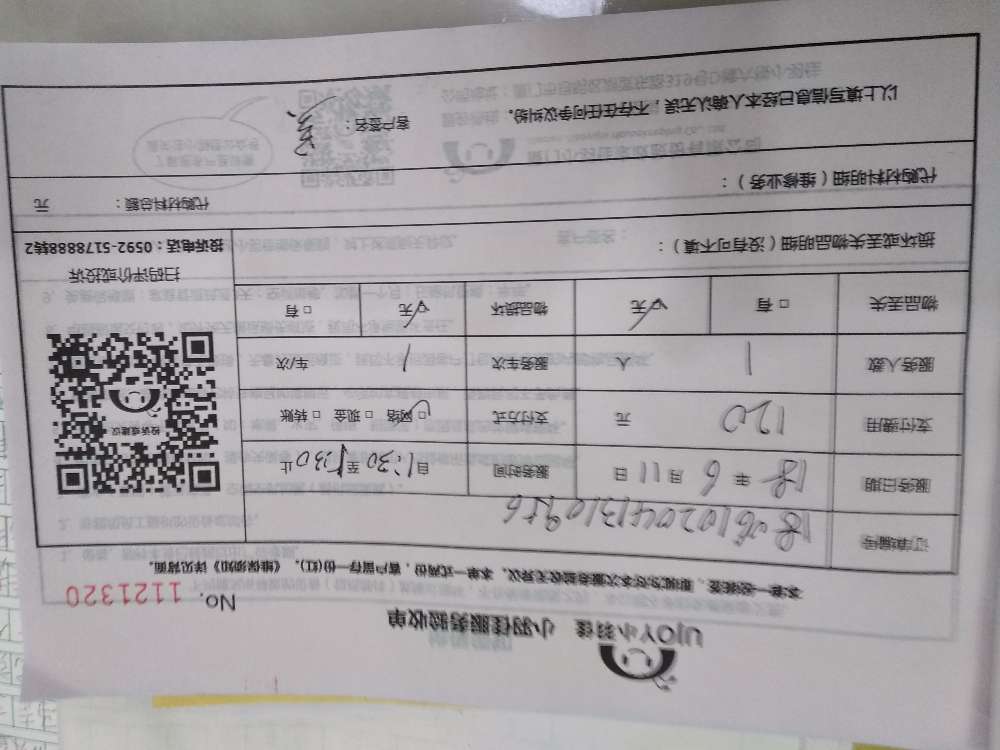 UJOY小羽佳 小羽佳服务验收单
No. 1121320
本单一经签签,即视为对本次服务验收无异议。本单一式两份,客户留存一份(红)。《维保须知》详见背面。
订单编号
服务日期 18 年 6 月 11 日 服务时间 自 1:30 至 5:30 止
支付费用 120 元 支付方式 网络 □ 现金 □ 转账
服务人数 1 人 服务车次 1 车/次
物品丢失 □ 有 无 物品损坏 □ 有 无
投诉或建议
扫码评价或投诉
投诉电话:0592-5178888转2
损坏或丢失物品明细(没有可不填):
代购材料明细(维修业务): 代购材料总额: 元
以上填写信息已经本人确认无误,不存在任何争议纠纷。 客户签名: